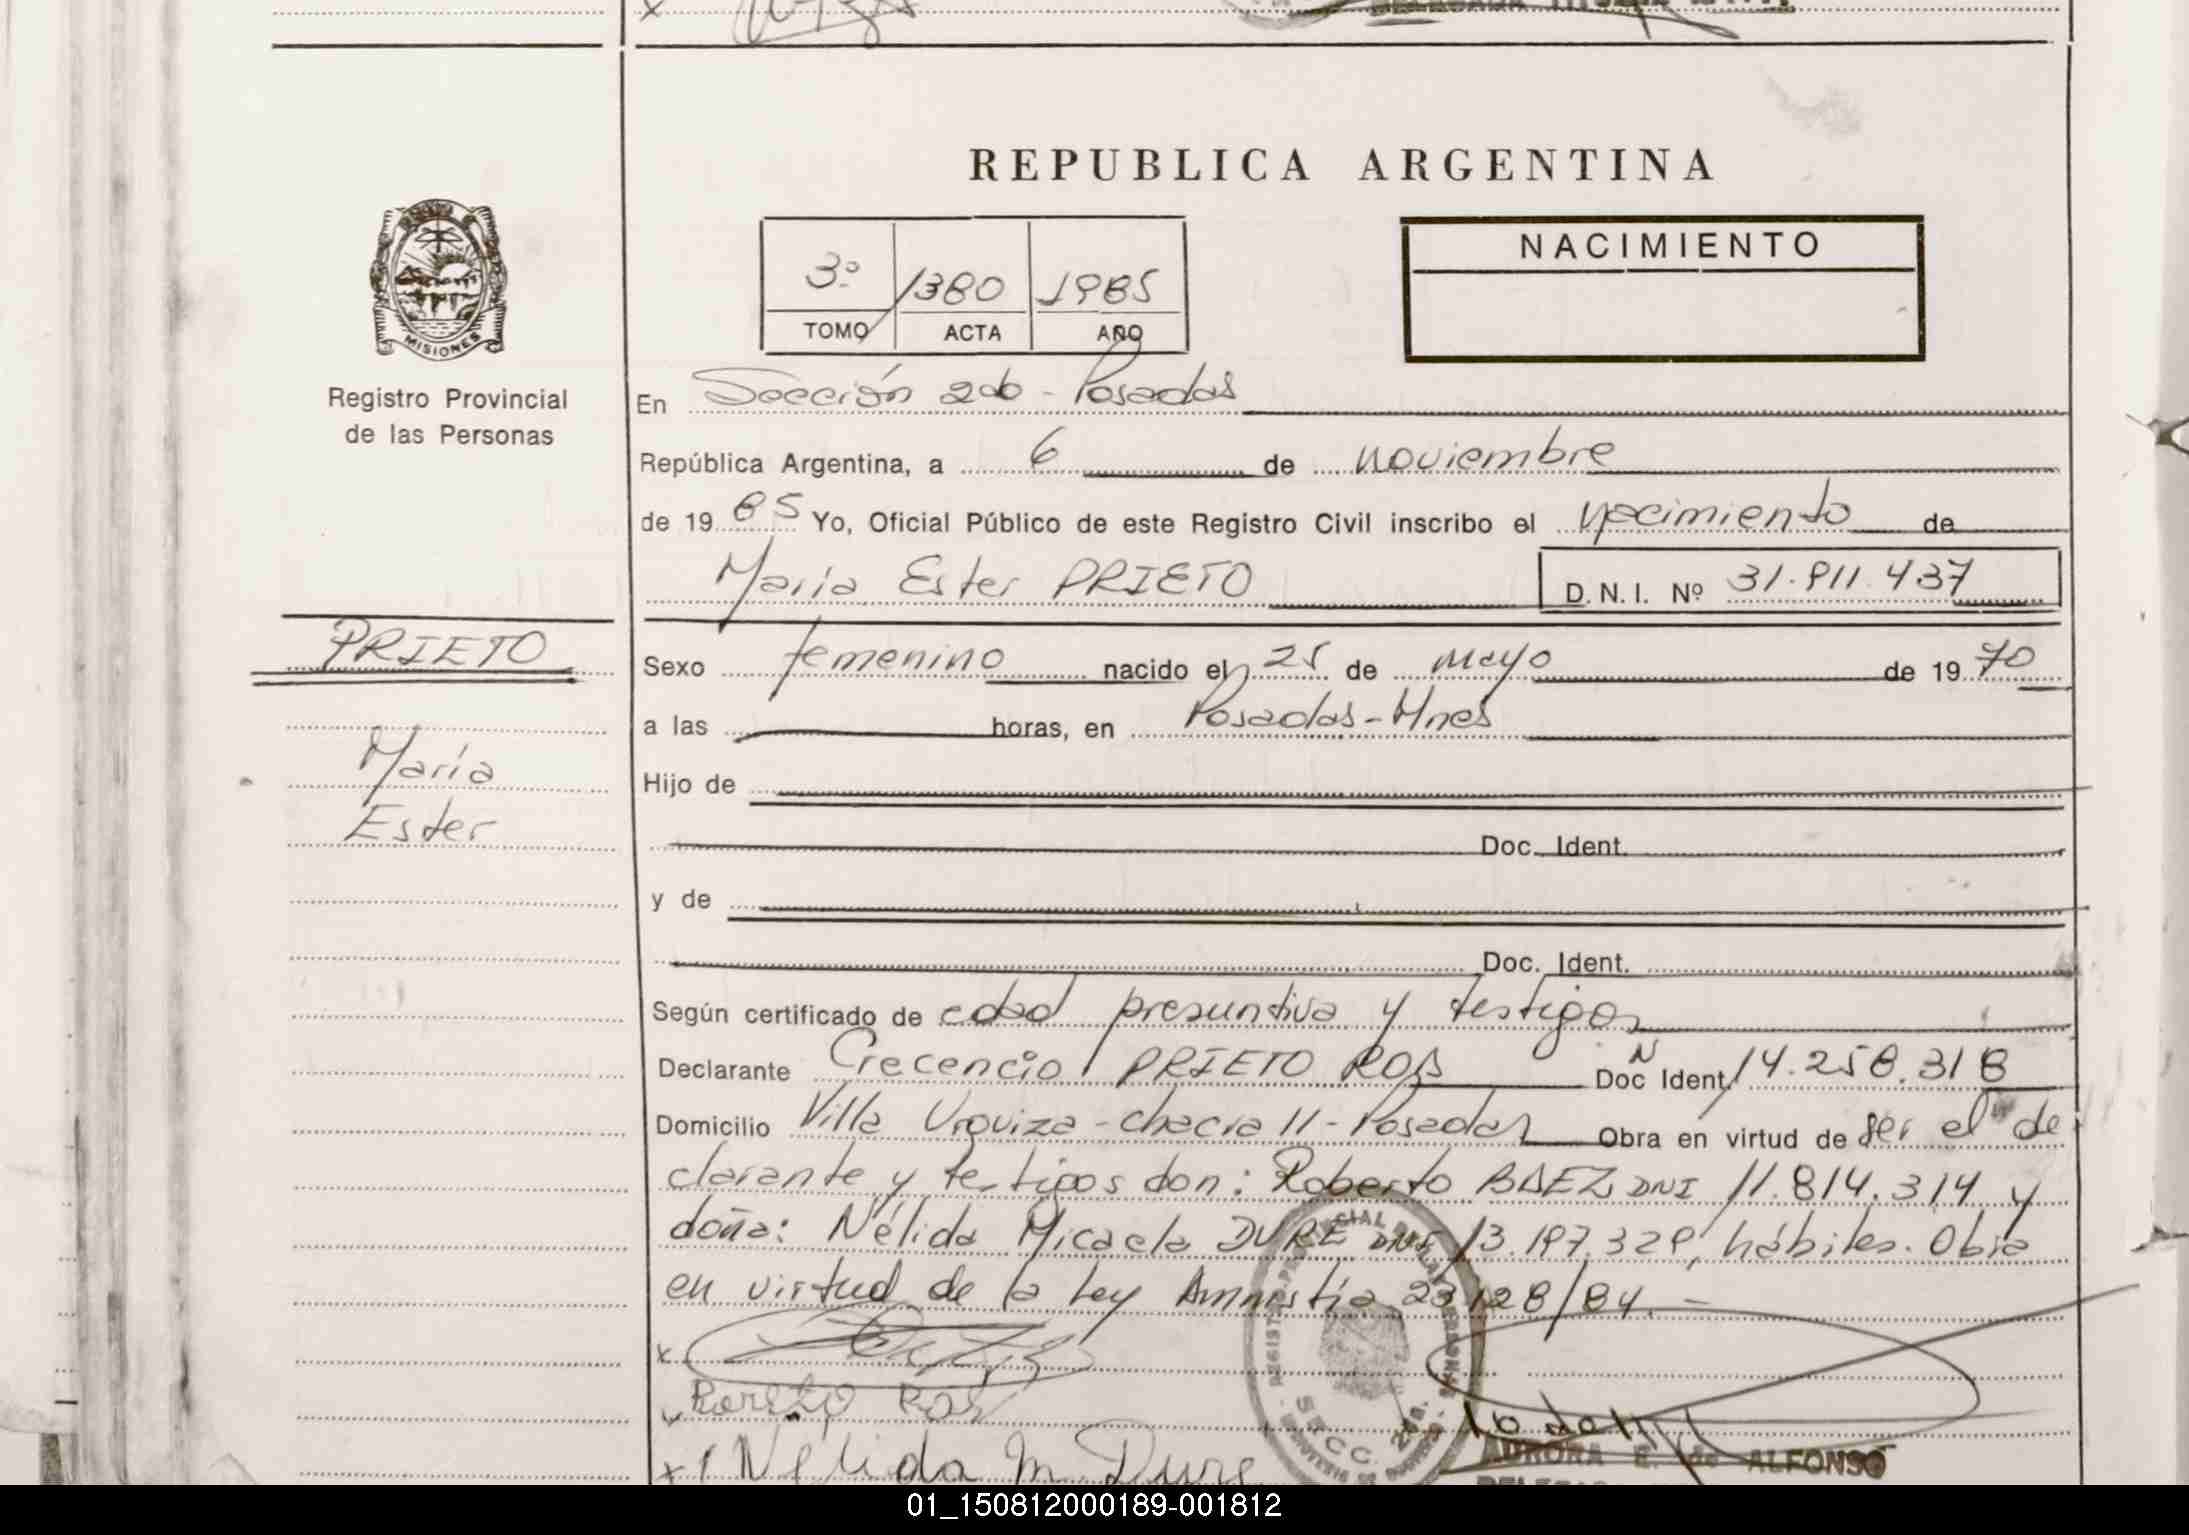 REPUBLICA ARGENTINA
MISIONES
Registro Provincial
de las Personas
3º 1380 1985
TOMO ACTA AÑO
NACIMIENTO
En Sección 2da - Posadas
República Argentina, a 6 de noviembre
de 1985 Yo, Oficial Público de este Registro Civil inscribo el nacimiento de
María Ester PRIETO D.N.I. Nº 31.911.437
PRIETO
María
Ester
Sexo femenino nacido el 25 de mayo de 1970
a las horas, en Posadas-Mnes
Hijo de
Doc. Ident.
y de
Doc. Ident.
Según certificado de edad presuntiva y testigos
Declarante Crecencio PRIETO ROA Doc Ident 14.258.318
Domicilio Villa Urquiza - chacra 11 - Posadas Obra en virtud de ser el de
clarante y testigos don: Roberto BAEZ DNI 11.814.314 y
doña: Nélida Micaela DURE DNI 13.197.329, hábiles. Obra
en virtud de la Ley Amnistía 23128/84. -
x
x
x Nelida M. Dure
SECC. 2da.
AURORA E. de ALFONSO
01_150812000189-001812